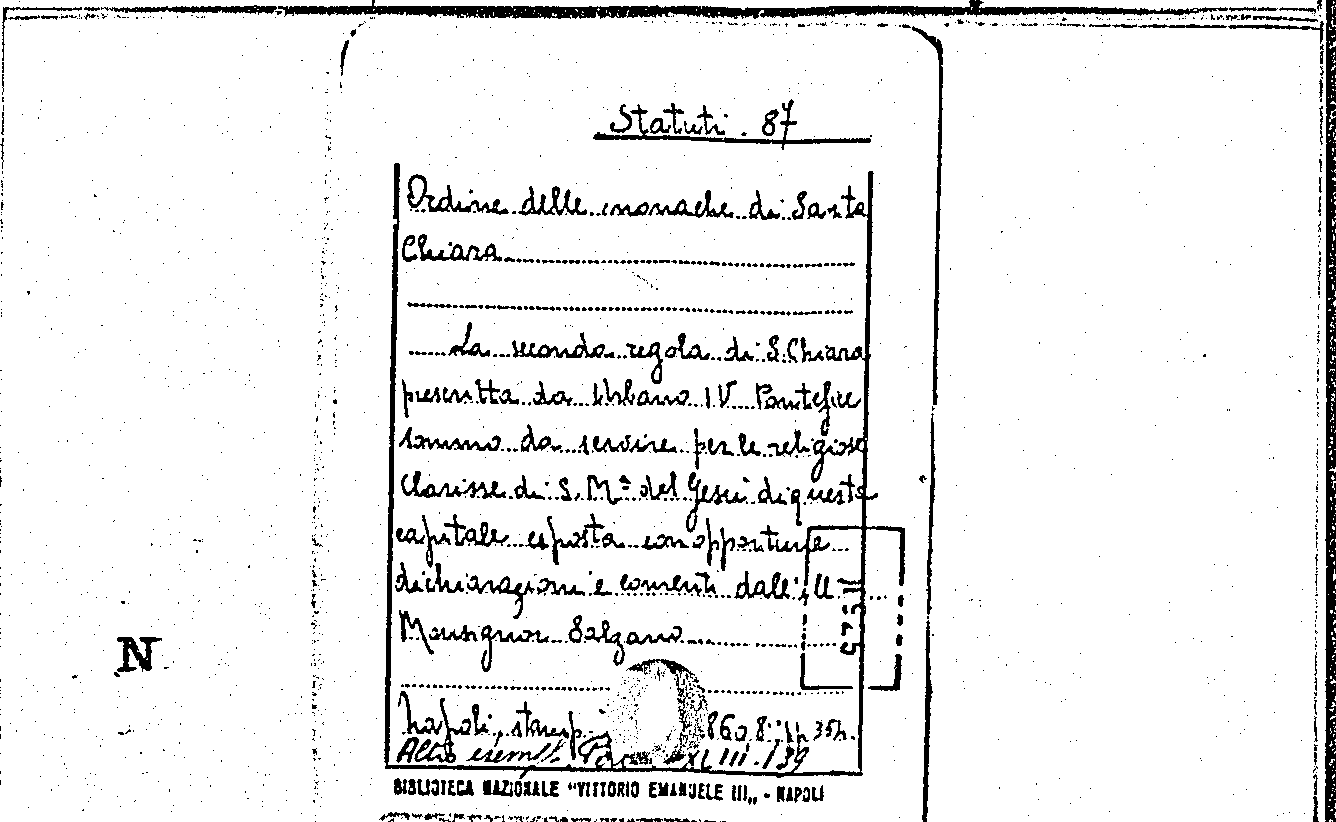 Statuti. 87
Ordine delle monache di Santa
Chiara
La seconda regola di S. Chiara
prescritta da Urbano IV Pontefice
sommo da servire per le religiose
Clarisse di S. Mª del Gesù di questa
capitale esposta con opportune
dichiarazioni e comenti dall'ill
Monsignor Salzano
Napoli, stamp 860 8: pp. 35
Altro esempl. XLIII. /39
BIBLIOTECA NAZIONALE "VITTORIO EMANUELE III„ - NAPOLI
N